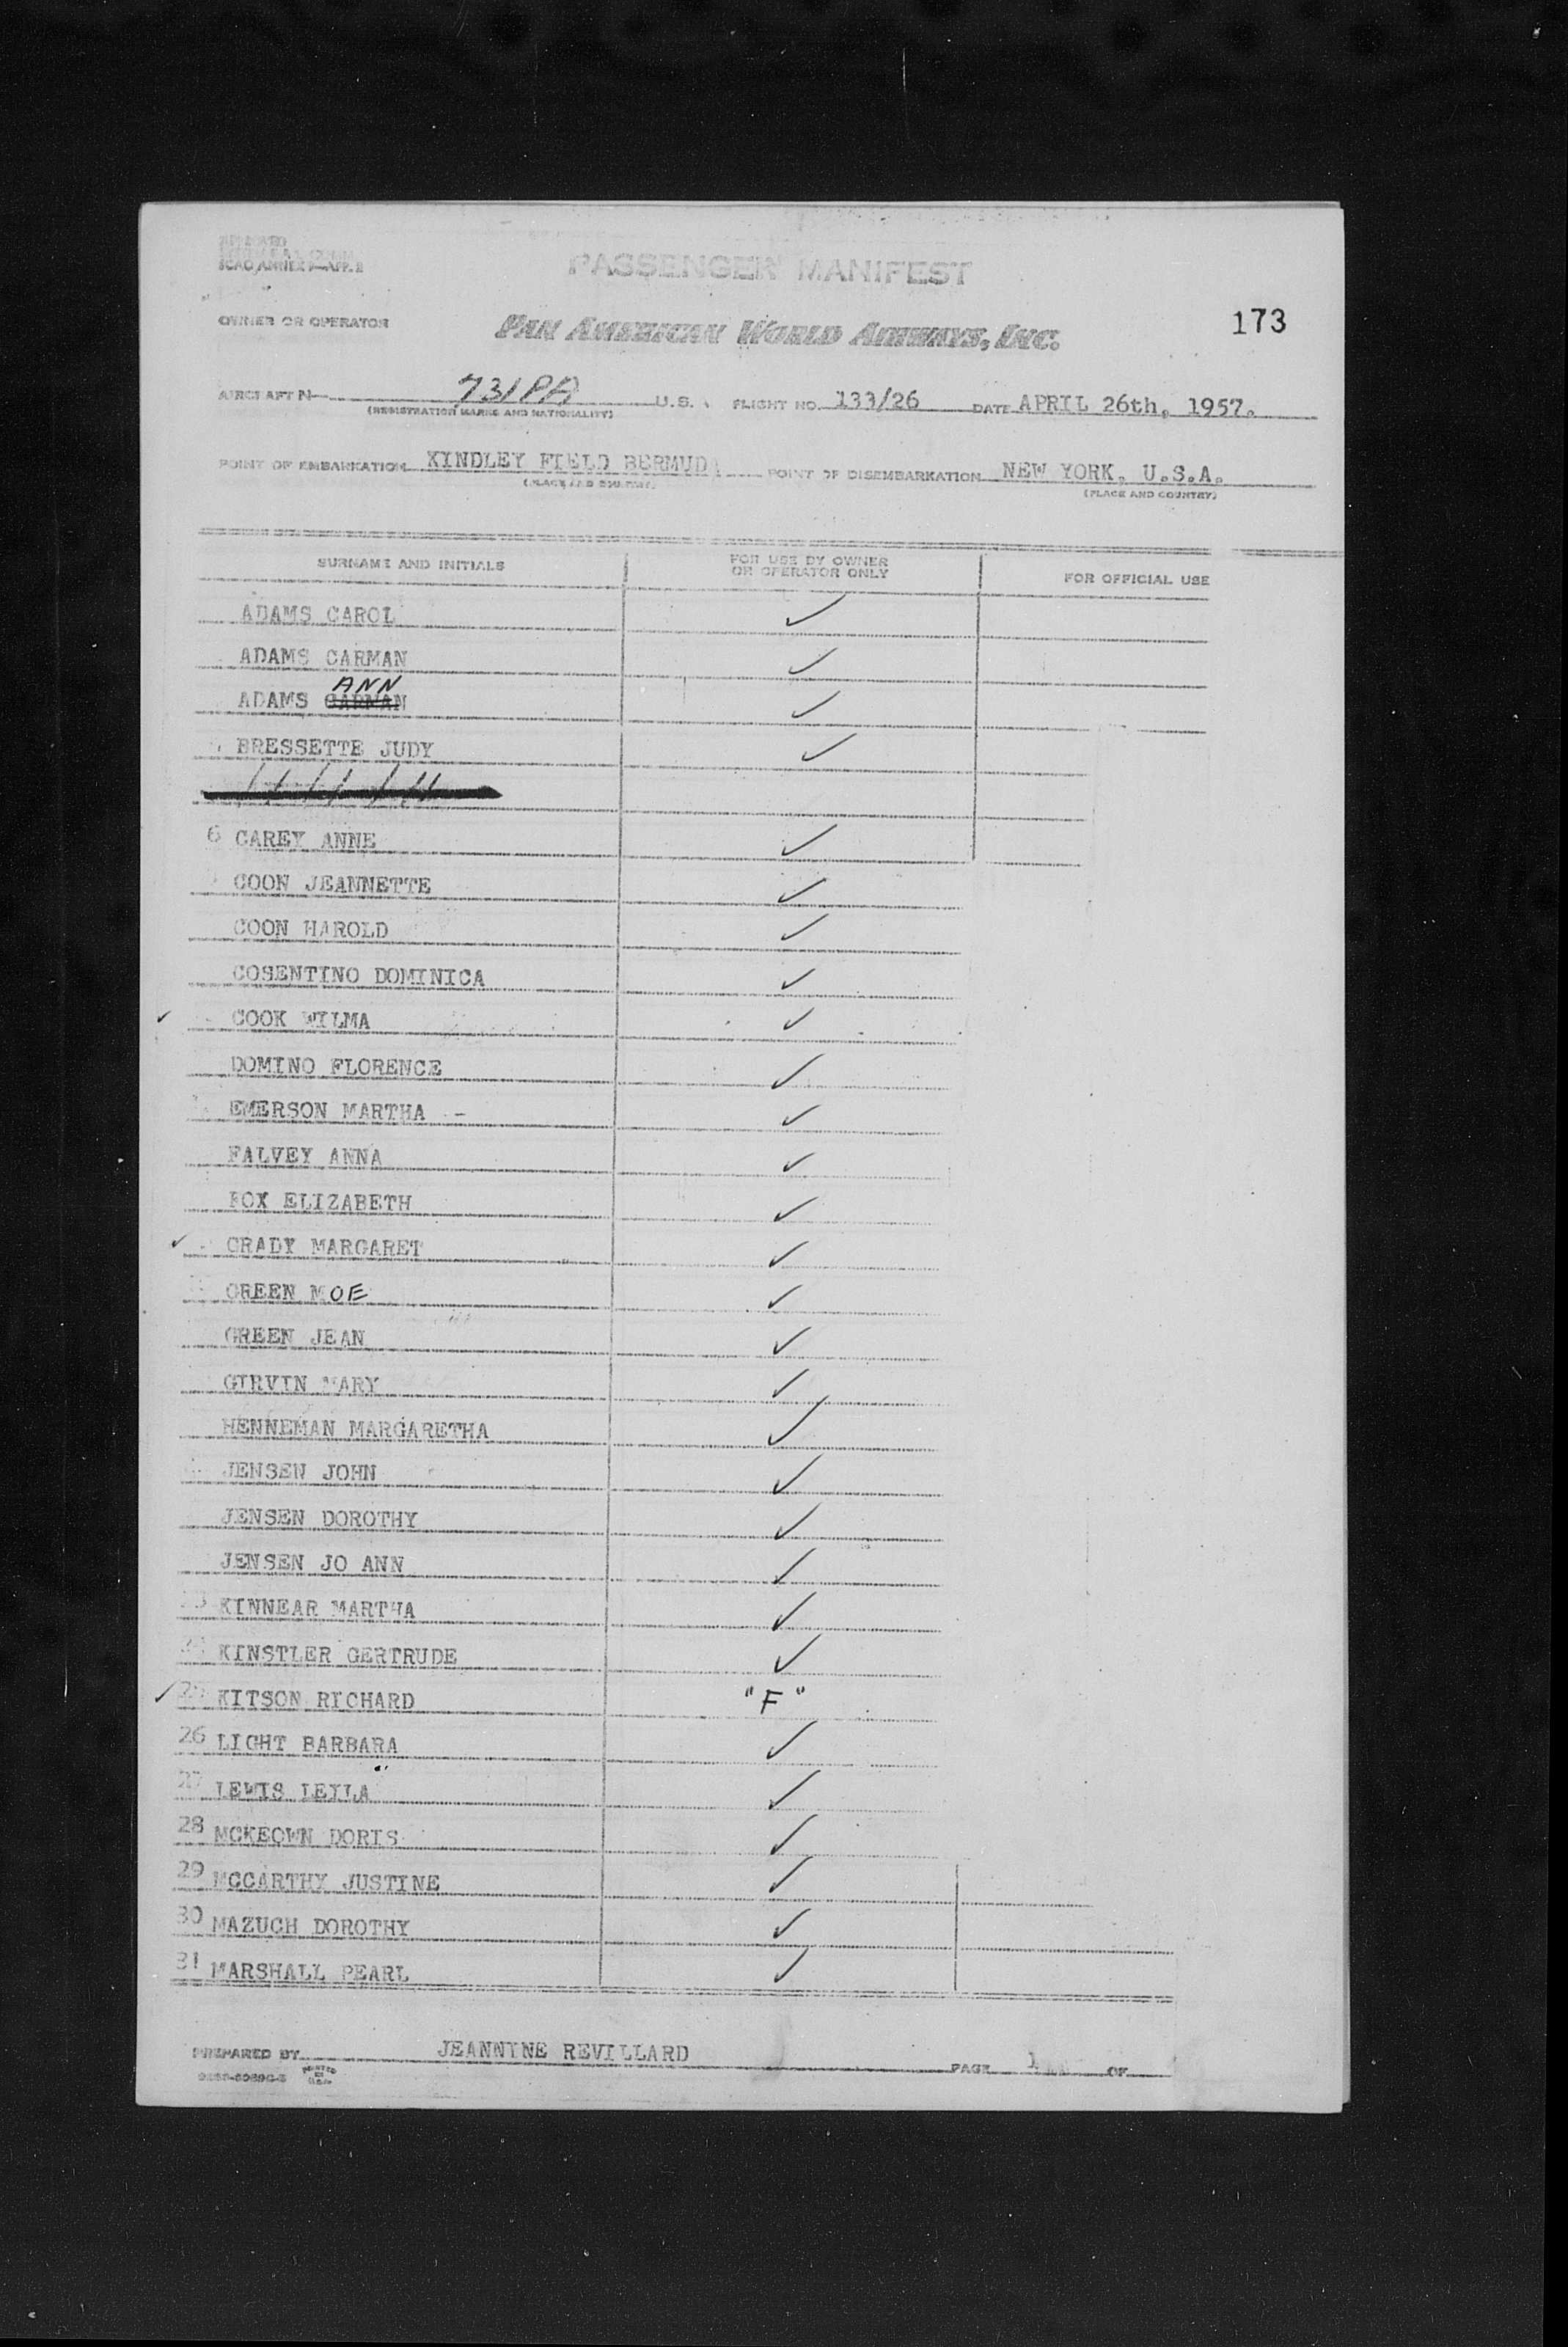 ICAO ANNEX 9—APP. B
PASSENGER MANIFEST
OWNER OR OPERATOR
PAN AMERICAN WORLD AIRWAYS, INC.
173
AIRCRAFT N— 731PA U.S. FLIGHT NO. 133/26 DATE APRIL 26th, 1957.
(REGISTRATION MARKS AND NATIONALITY)
POINT OF EMBARKATION KINDLEY FIELD BERMUDA POINT OF DISEMBARKATION NEW YORK, U.S.A.
(PLACE AND COUNTRY) (PLACE AND COUNTRY)
SURNAME AND INITIALS FOR USE BY OWNER OR OPERATOR ONLY FOR OFFICIAL USE
ADAMS CAROL ✓
ADAMS CARMAN ✓
ANN
ADAMS CARMAN ✓
BRESSETTE JUDY ✓
6 CAREY ANNE ✓
COON JEANNETTE ✓
COON HAROLD ✓
COSENTINO DOMINICA ✓
✓ COOK WILMA ✓
DOMINO FLORENCE ✓
EMERSON MARTHA - ✓
FALVEY ANNA ✓
FOX ELIZABETH ✓
✓ GRADY MARGARET ✓
GREEN MOE ✓
GREEN JEAN ✓
GIRVIN MARY ✓
HENNEMAN MARGARETHA ✓
JENSEN JOHN ✓
JENSEN DOROTHY ✓
JENSEN JO ANN ✓
23 KINNEAR MARTHA ✓
24 KINSTLER GERTRUDE ✓
✓ 25 KITSON RICHARD "F"
26 LIGHT BARBARA ✓
27 LEWIS LEILA ✓
28 MCKEOWN DORIS ✓
29 MCCARTHY JUSTINE ✓
30 MAZUCH DOROTHY ✓
31 MARSHALL PEARL ✓
PREPARED BY JEANNINE REVILLARD PAGE 1 OF
PRINTED IN U.S.A.